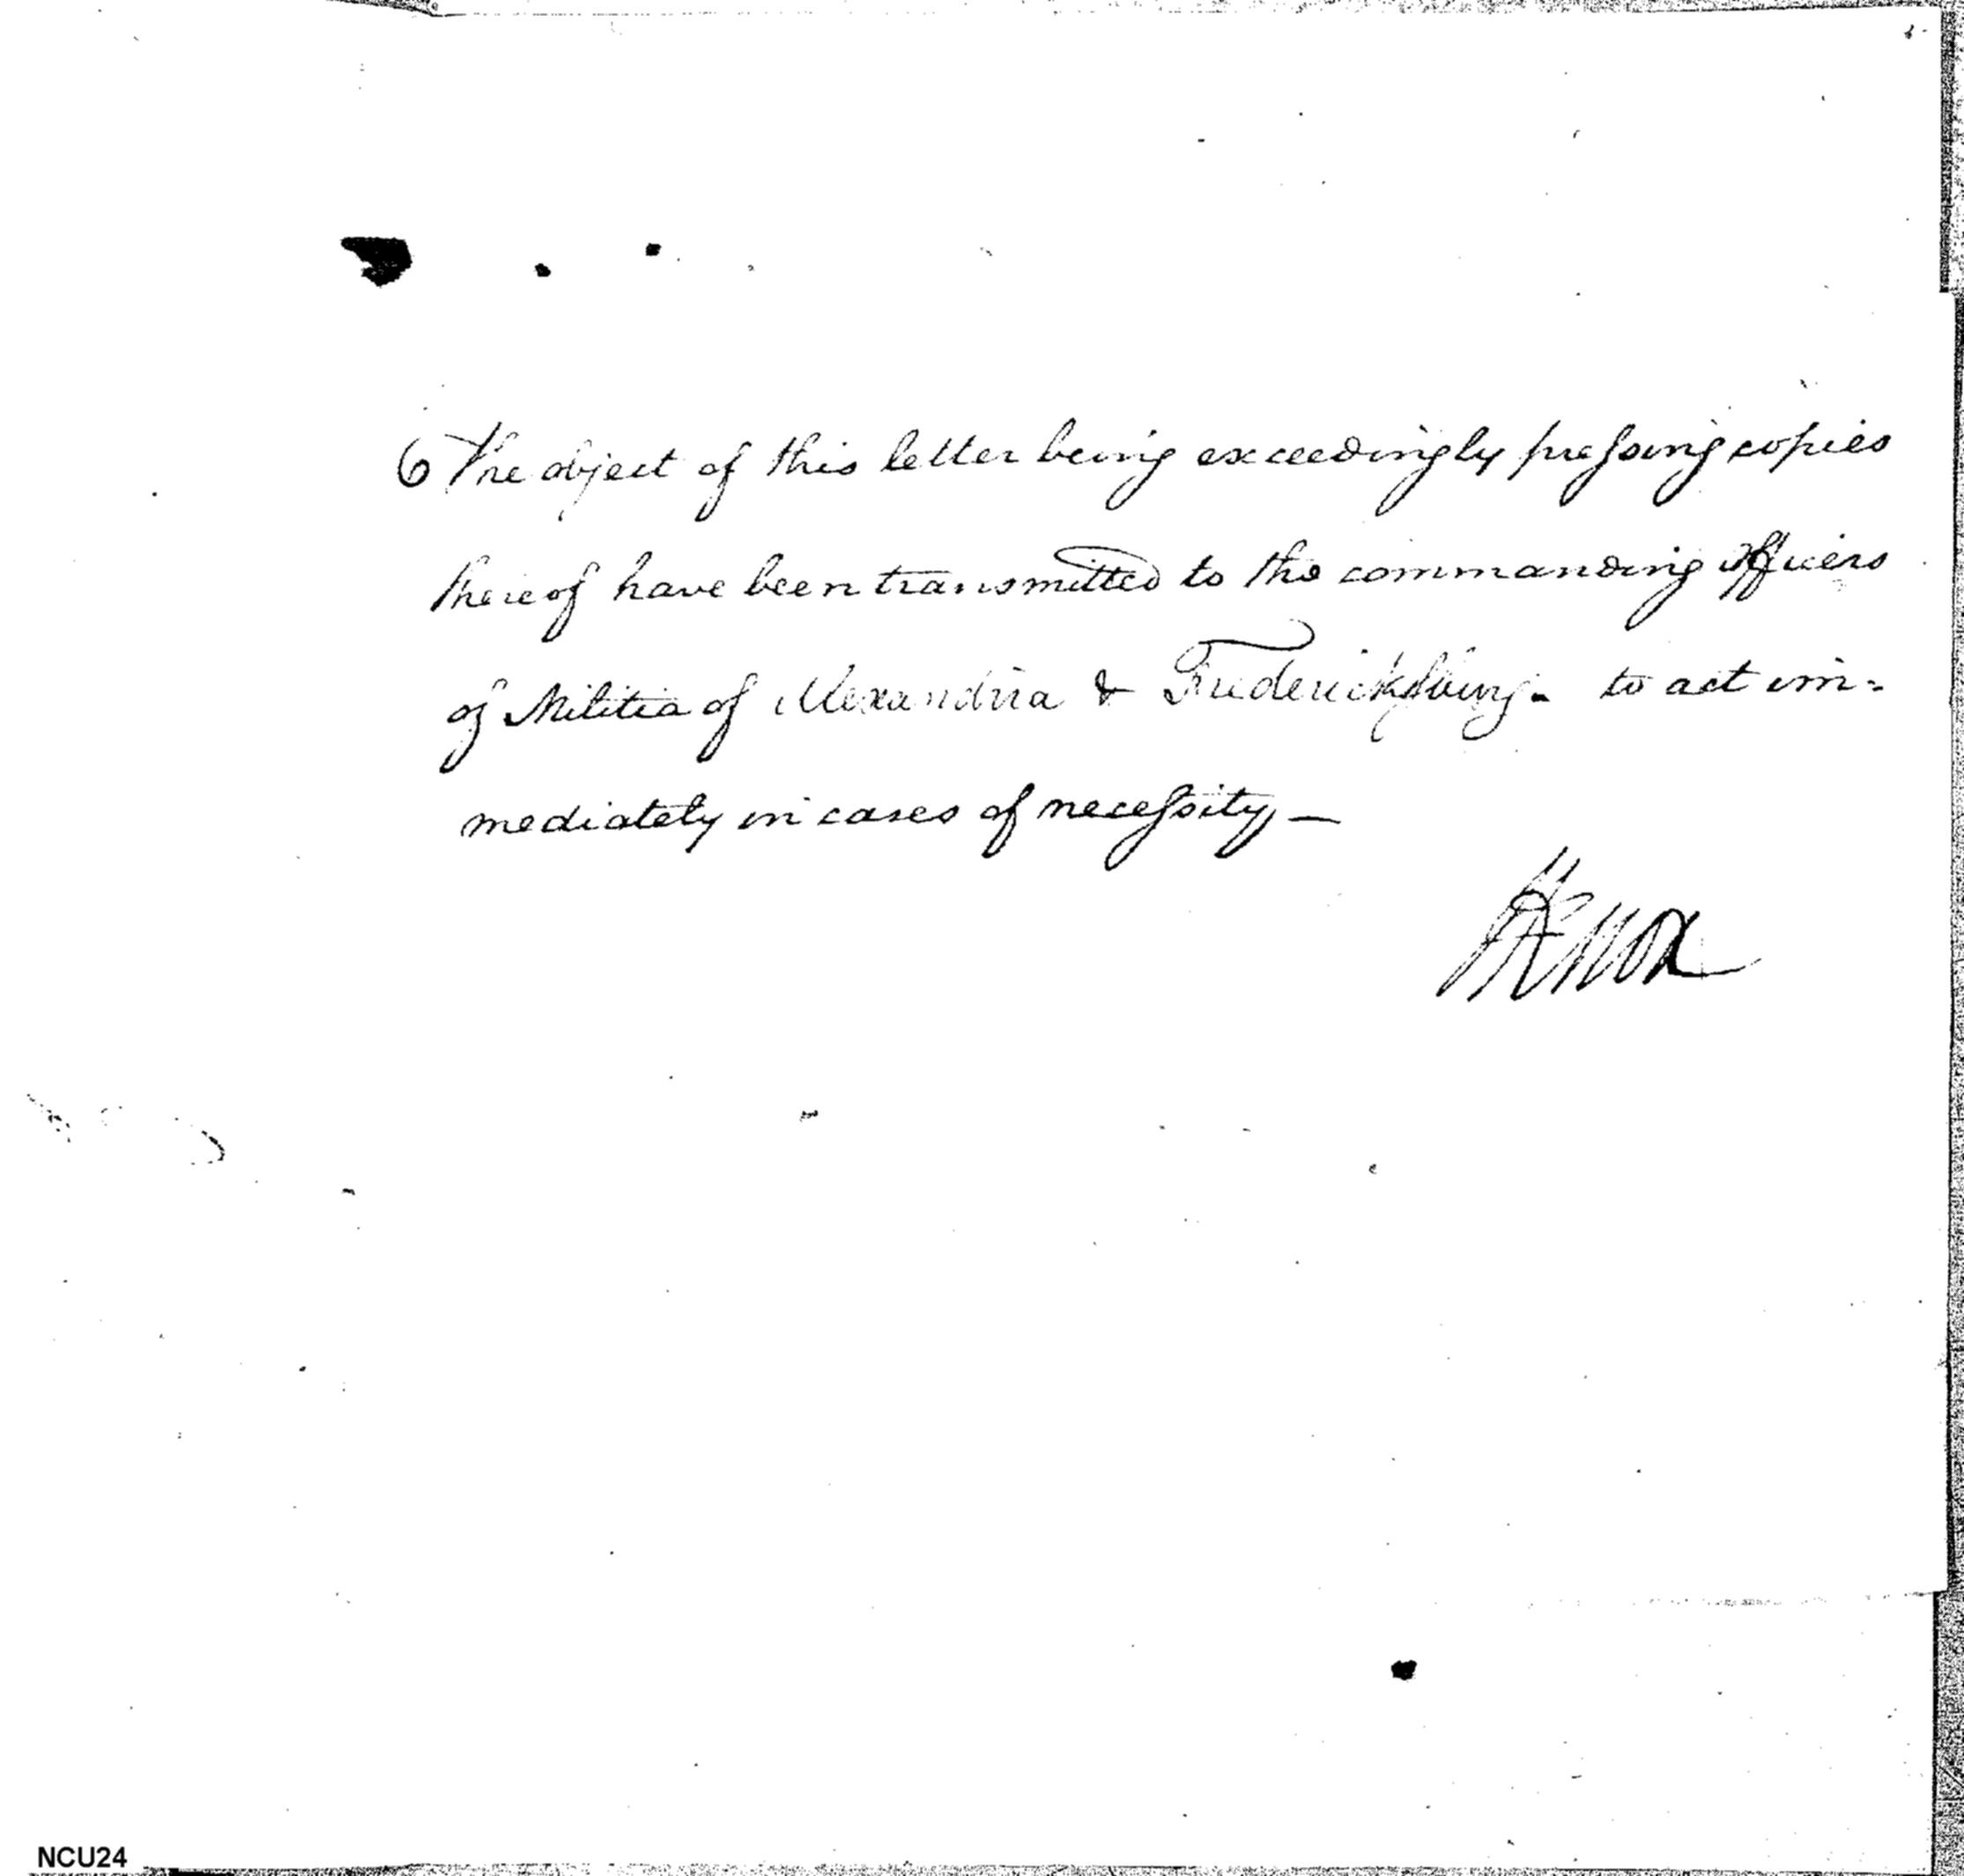 The object of this letter being exceedingly pressing copies
thereof have been transmitted to the commanding officers
of Militia of Alexandria & Fredericksburg. to act im=
mediately in cases of necessity—
HKnox
NCU24